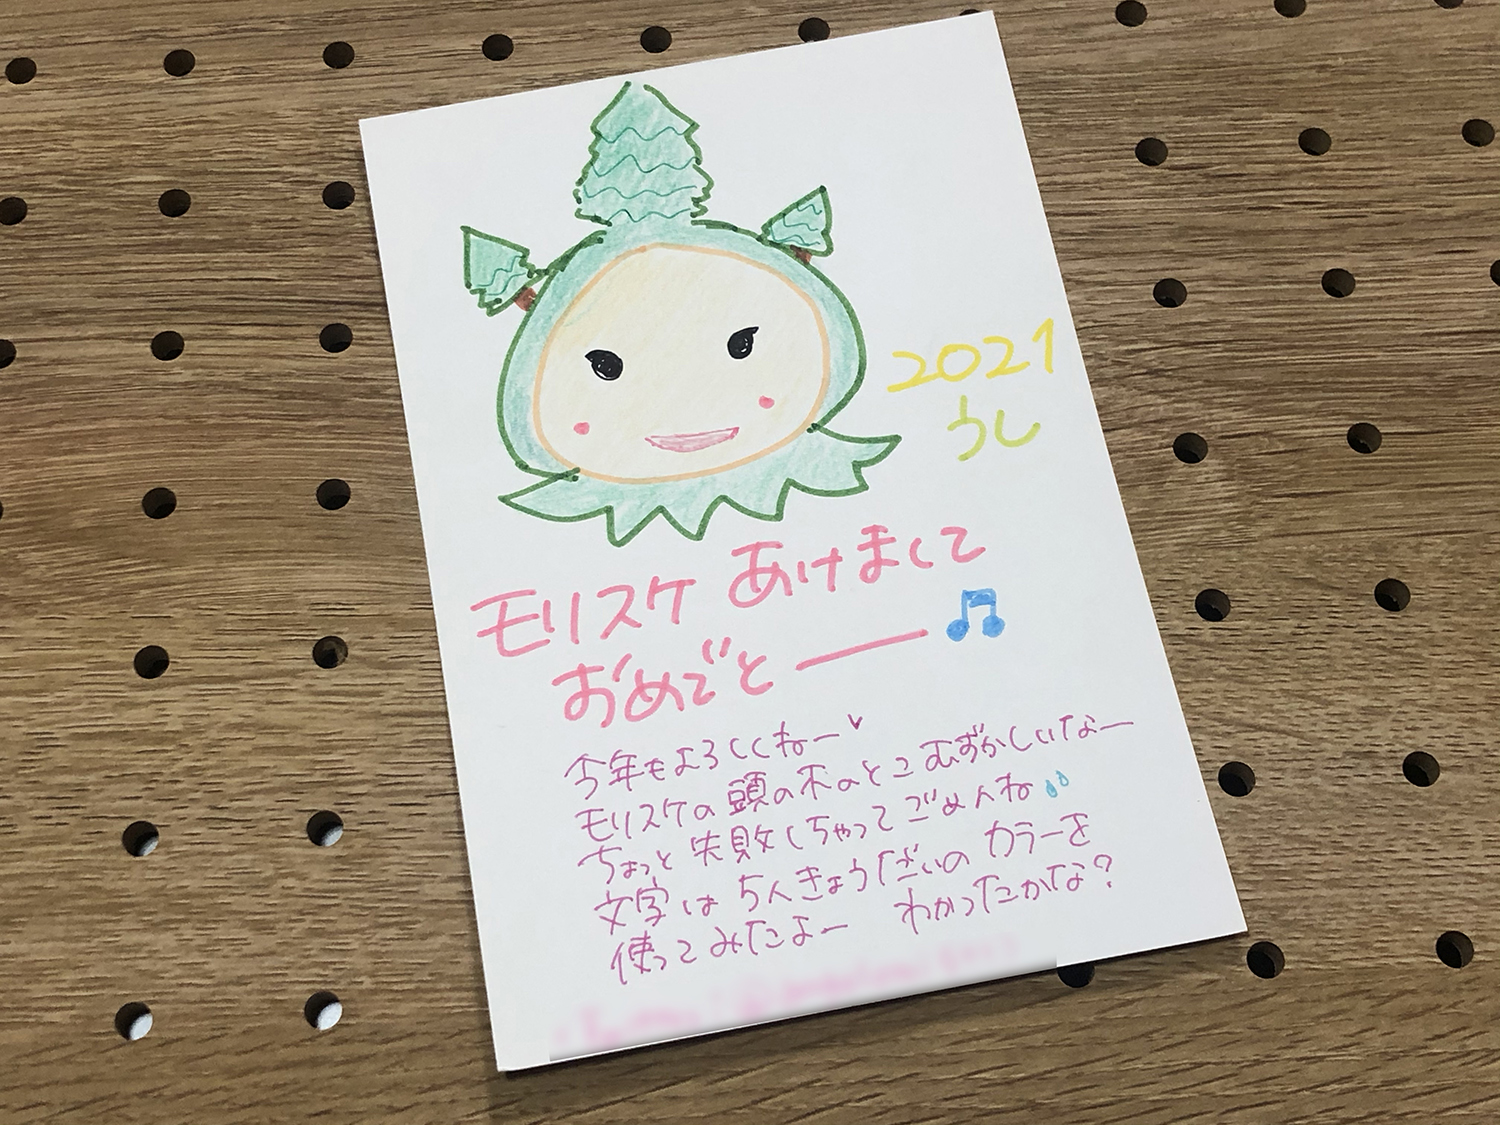 2021
うし
モリスケ あけまして
おめでとー
今年もよろしくねー
モリスケの頭の木のとこむずかしいなー
ちょっと失敗しちゃってごめんね
文字はちんきょうだいのカラーを
使ってみたよー わかったかな?